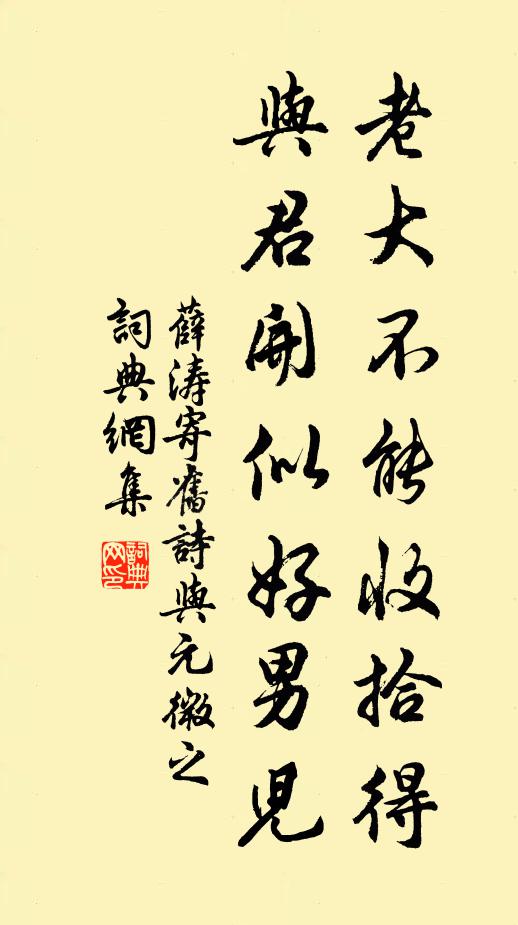 老大不能收拾得
與君開似好男兒
薛濤寄舊詩與元微之
詞典網集
詞典網印